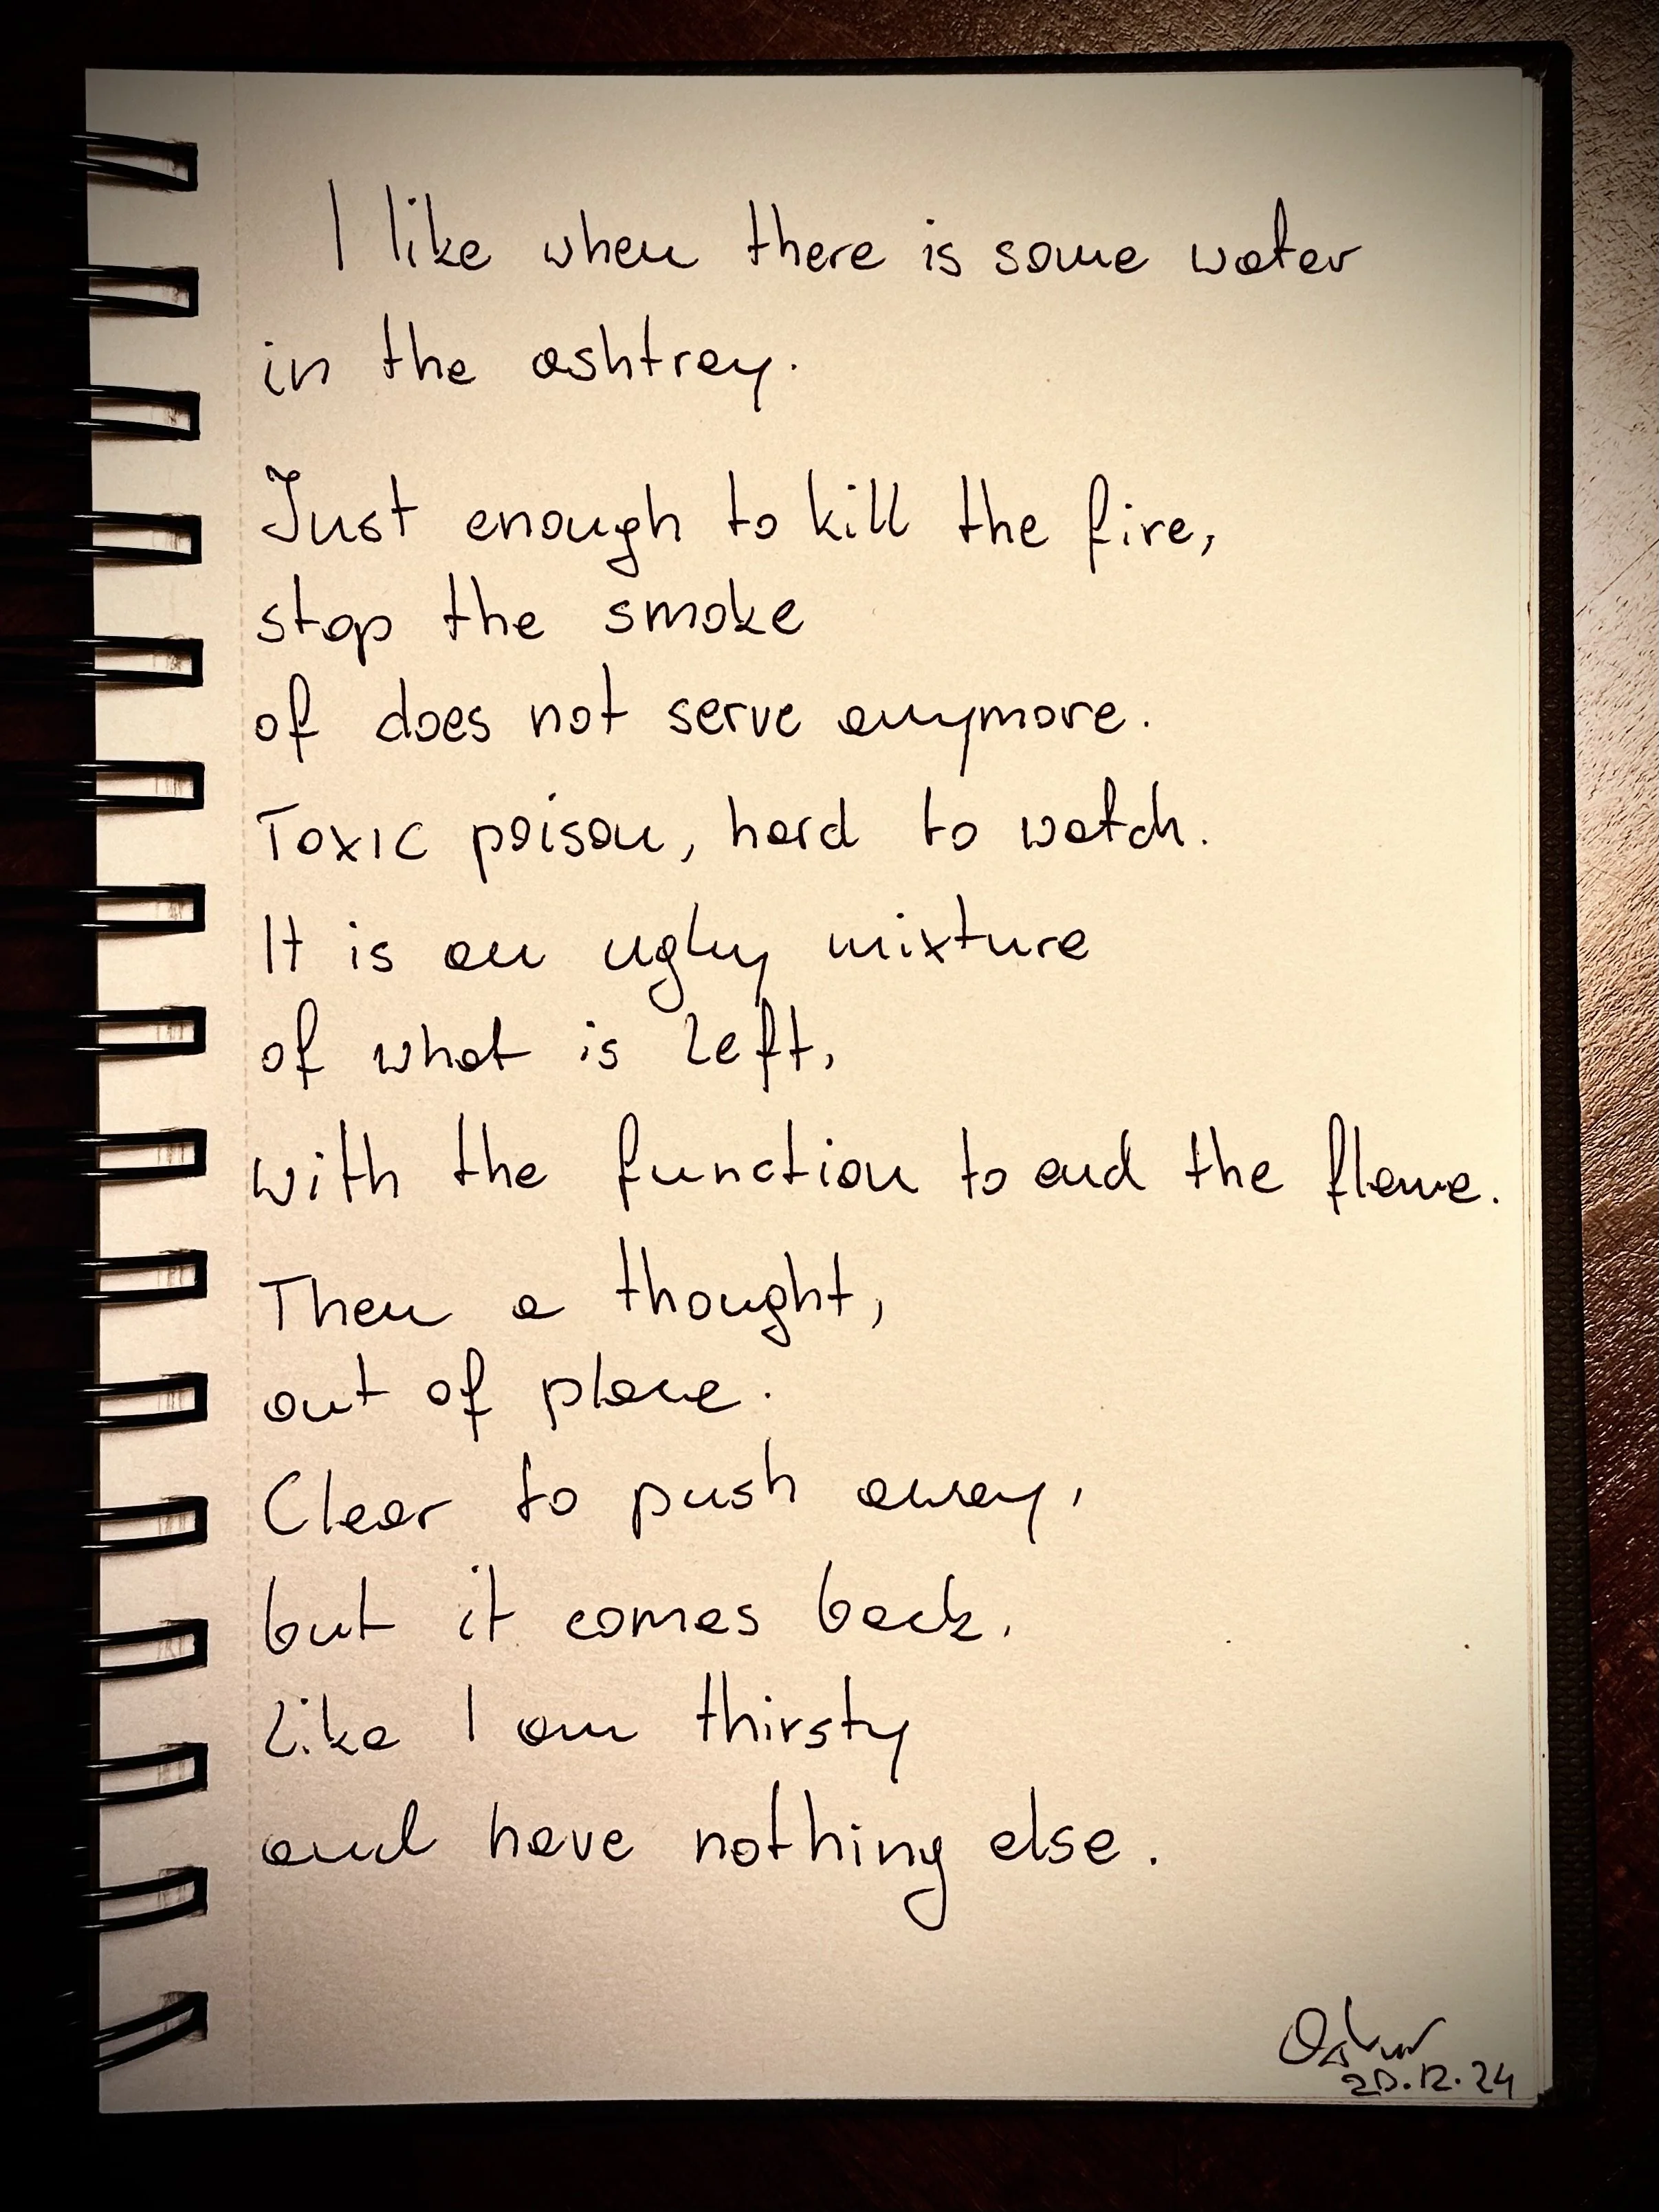 I like when there is some water
in the ashtray.
Just enough to kill the fire,
stop the smoke
of does not serve anymore.
Toxic poison, hard to watch.
It is an ugly mixture
of what is left,
with the function to end the flame.
Then a thought,
out of place.
Clear to push away,
but it comes back.
Like I am thirsty
and have nothing else.
20.12.24